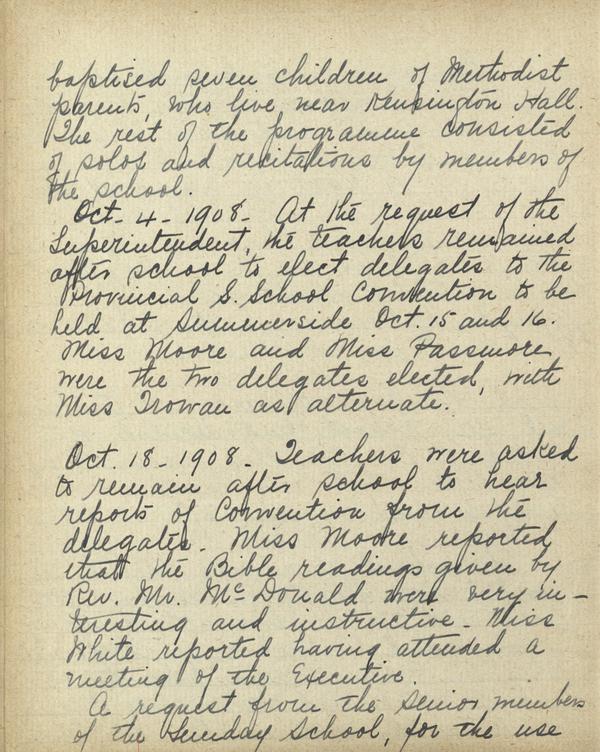 baptised seven children of Methodist
parents, who live near Kensington Hall.
The rest of the programme consisted
of solos and recitations by members of
the school.
Oct. 4 - 1908. At the request of the
Superintendent, the teachers remained
after school to elect delegates to the
Provincial S. School Convention to be
held at Summerside Oct. 15 and 16.
Miss Moore and Miss Passmore
were the two delegates elected, with
Miss Trowan as alternate.
Oct. 18 - 1908 - Teachers were asked
to remain after school to hear
reports of Convention from the
delegates. Miss Moore reported
that the Bible readings given by
Rev. Mr. McDonald were very in-
teresting and instructive - Miss
White reported having attended a
meeting of the Executive.
A request from the senior members
of the Sunday School, for the use